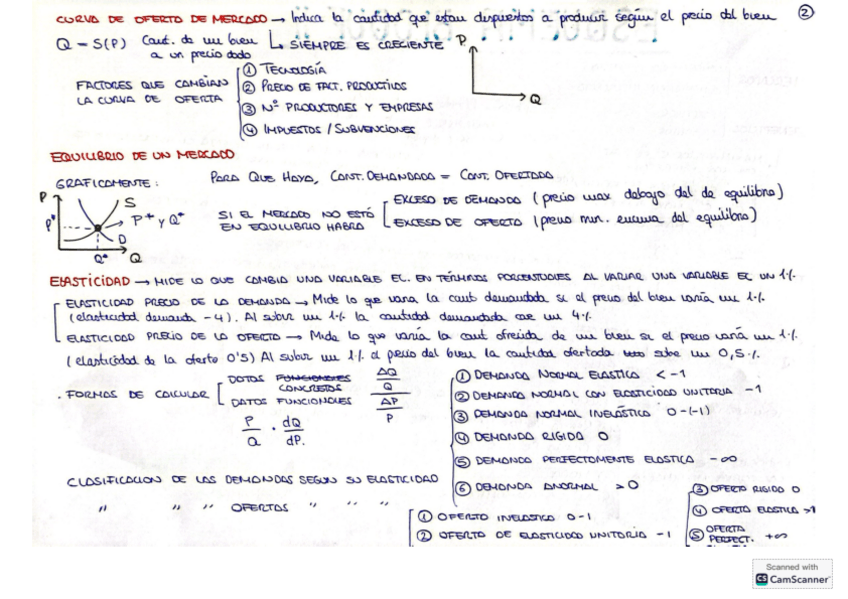 CURVA DE OFERTA DE MERCADO → Indica la cantidad que estan dispuestos a producir según el precio del bien ②
Q = S(P) Cant. de un bien a un precio dado
↳ SIEMPRE ES CRECIENTE
P
Q
FACTORES QUE CAMBIAN LA CURVA DE OFERTA
① TECNOLOGÍA
② PRECIO DE FACT. PRODUCTIVOS
③ Nº PRODUCTORES Y EMPRESAS
④ IMPUESTOS / SUBVENCIONES
EQUILIBRIO DE UN MERCADO
GRAFICAMENTE:
PARA QUE HAYA, CANT. DEMANDADA = CANT. OFERTADA
P
S
P*
P* y Q*
D
Q*
Q
SI EL MERCADO NO ESTÁ EN EQUILIBRIO HABRÁ
EXCESO DE DEMANDA (precio max debajo del de equilibrio)
EXCESO DE OFERTA (precio min. encima del equilibrio)
ELASTICIDAD → MIDE LO QUE CAMBIA UNA VARIABLE EC. EN TÉRMINOS PORCENTUALES AL VARIAR UNA VARIABLE EC UN 1%
ELASTICIDAD PRECIO DE LA DEMANDA → Mide lo que varia la cant demandada si el precio del bien varía un 1%
(elasticidad demanda -4). Al subir un 1% la cantidad demandada cae un 4%
ELASTICIDAD PRECIO DE LA OFERTA → Mide lo que varía la cant ofrecida de un bien si el precio varía un 1%
(elasticidad de la oferta 0'5) Al subir un 1% el precio del bien la cantidad ofertada sube un 0,5%
. FORMAS DE CALCULAR
DATOS FUNCIONALES CONCRETOS
ΔQ
Q
ΔP
P
DATOS FUNCIONALES
P
Q
·
dQ
dP.
① DEMANDA NORMAL ELASTICA < -1
② DEMANDA NORMAL CON ELASTICIDAD UNITARIA -1
③ DEMANDA NORMAL INELÁSTICA 0-(-1)
④ DEMANDA RIGIDA 0
⑤ DEMANDA PERFECTAMENTE ELASTICA -∞
⑥ DEMANDA ANORMAL > 0
CLASIFICACION DE LAS DEMANDAS SEGUN SU ELASTICIDAD
" " " OFERTAS " " "
① OFERTA INELASTICA 0-1
② OFERTA DE ELASTICIDAD UNITARIA - 1
③ OFERTA RIGIDA 0
④ OFERTA ELASTICA >1
⑤ OFERTA PERFECT. +∞
Scanned with
CS CamScanner